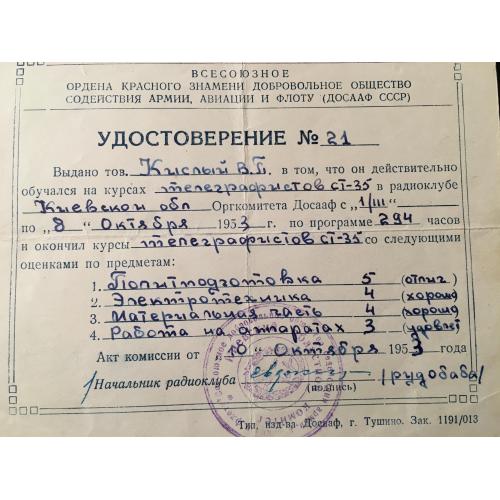 ВСЕСОЮЗНОЕ
ОРДЕНА КРАСНОГО ЗНАМЕНИ ДОБРОВОЛЬНОЕ ОБЩЕСТВО
СОДЕЙСТВИЯ АРМИИ, АВИАЦИИ И ФЛОТУ (ДОСААФ СССР)
УДОСТОВЕРЕНИЕ № 21
Выдано тов. Кислый В.П. в том, что он действительно
обучался на курсах телеграфистов СТ-35 в радиоклубе
Киевской обл Оргкомитета Досааф с „1/III"
по „8" Октября 1953 г. по программе 294 часов
и окончил курсы телеграфистов СТ-35 со следующими
оценками по предметам:
1. Политподготовка 5 (отлич
2. Электротехника 4 (хорош
3. Материальная часть 4 (хорош
4. Работа на аппаратах 3 (удовл
Акт комиссии от „10" октября 1953 года
Начальник радиоклуба /рудобаба/
(подпись)
Тип. изд-ва Досааф, г. Тушино. Зак. 1191/013